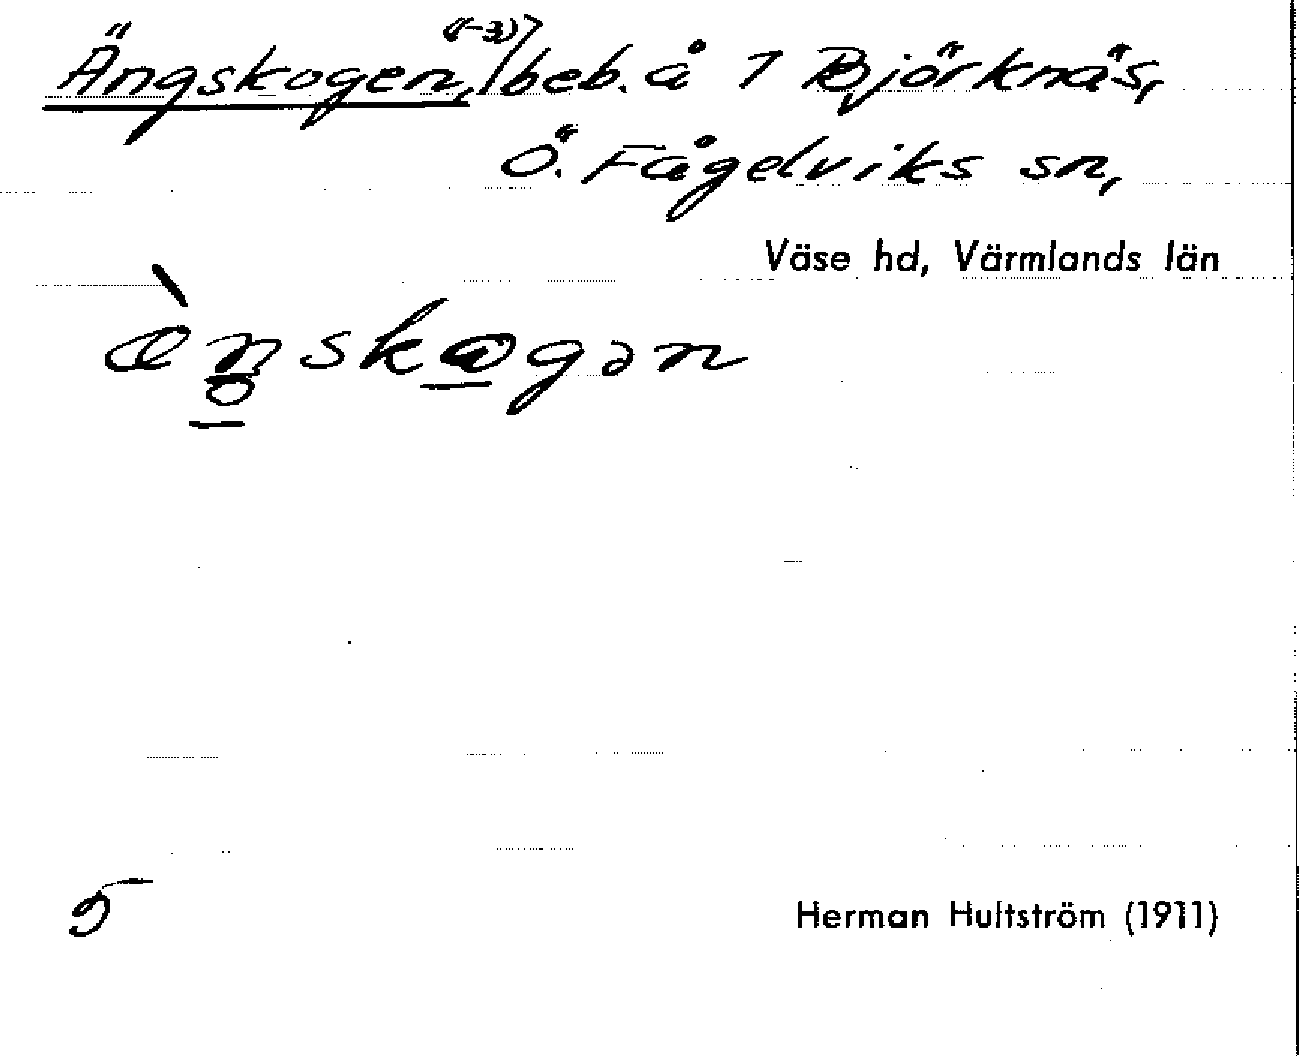 Ängskogen, (1-3) beb. å 1 Björknäs,
Ö. Fågelviks sn,
Väse hd, Värmlands län
5
Herman Hultström (1911)